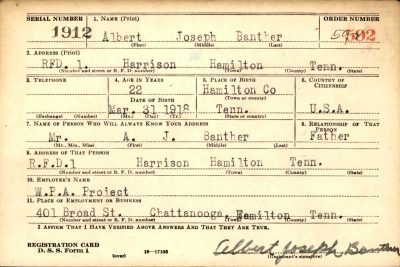 SERIAL NUMBER 1. NAME (Print) ORDER NUMBER
1912 Albert Joseph Banther
(First) (Middle) (Last)
2. ADDRESS (Print)
RFD. 1. Harrison Hamilton Tenn.
(Number and street or R. F. D. number) (Town) (County) (State)
3. TELEPHONE 4. AGE IN YEARS 5. PLACE OF BIRTH 6. COUNTRY OF CITIZENSHIP
22 Hamilton Co
DATE OF BIRTH (Town or county)
Mar. 31 1918 Tenn. U.S.A.
(Exchange) (Number) (Mo.) (Day) (Yr.) (State or country)
7. NAME OF PERSON WHO WILL ALWAYS KNOW YOUR ADDRESS 8. RELATIONSHIP OF THAT PERSON
Mr. A. J. Banther Father
(Mr., Mrs., Miss) (First) (Middle) (Last)
9. ADDRESS OF THAT PERSON
R.F.D.1 Harrison Hamilton Tenn.
(Number and street or R. F. D. number) (Town) (County) (State)
10. EMPLOYER'S NAME
W.P.A. Project
11. PLACE OF EMPLOYMENT OR BUSINESS
401 Broad St. Chattanooga, Hamilton Tenn.
(Number and street or R. F. D. number) (Town) (County) (State)
I AFFIRM THAT I HAVE VERIFIED ABOVE ANSWERS AND THAT THEY ARE TRUE.
REGISTRATION CARD
D. S. S. Form 1 (over) 16—17105 Albert Joseph Banther
(Registrant's signature)